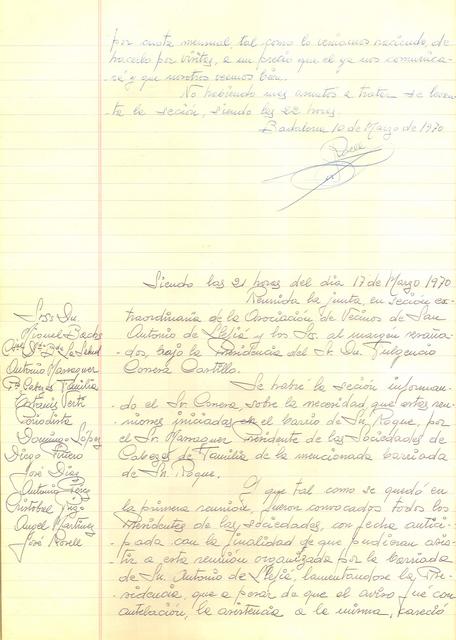 por cuota mensual, tal como lo veniamos haciendo, de
hacerlo por visitas, a un precio que el ya nos comunica-
ra y que nosotros veemos bien.
No habiendo mas asuntos a tratar se levan-
ta la seción, siendo las 22 horas.
Badalona 10 de Marzo de 1970
Siendo las 21 horas del dia 17 de Marzo 1970
Reunida la junta, en seción ex-
traordinaria de la Asociación de Vecinos de San
Antonio de Llefiá y los Srs. al margén reseña-
dos, bajo la Presidencia del Sr. Dn. Fulgencio
Conesa Castillo.
Se habré la seción informan-
do el Sr. Conesa sobre la necesidad que estas reu-
niones iniciadas en el barrio de Sn. Roque, por
el Sr. Marraguer Presidente de las Sociedades de
Cabezas de Familia de la mencionada barriada
de Sn. Roque.
Y que tal como se quedó en
la primera reunión, fueron convocados todos los
Presidentes de las sociedades, con fecha antici-
pada con la finalidad de que pudieran asis-
tir a esta reunión organizada por la barriada
de Sn. Antonio de Llefiá, lamentandose la Pre-
sidencia, que a pesar de que el aviso fué con
antelación, la asistencia a la misma, careció
Sres. Dn.
Miguel
Salud
Antonio Marraguer
Cabezas Familia
Periodista
Domingo López
Diego
José Díaz
Antonio
Cristobal
Angel Martinez
José Rosell